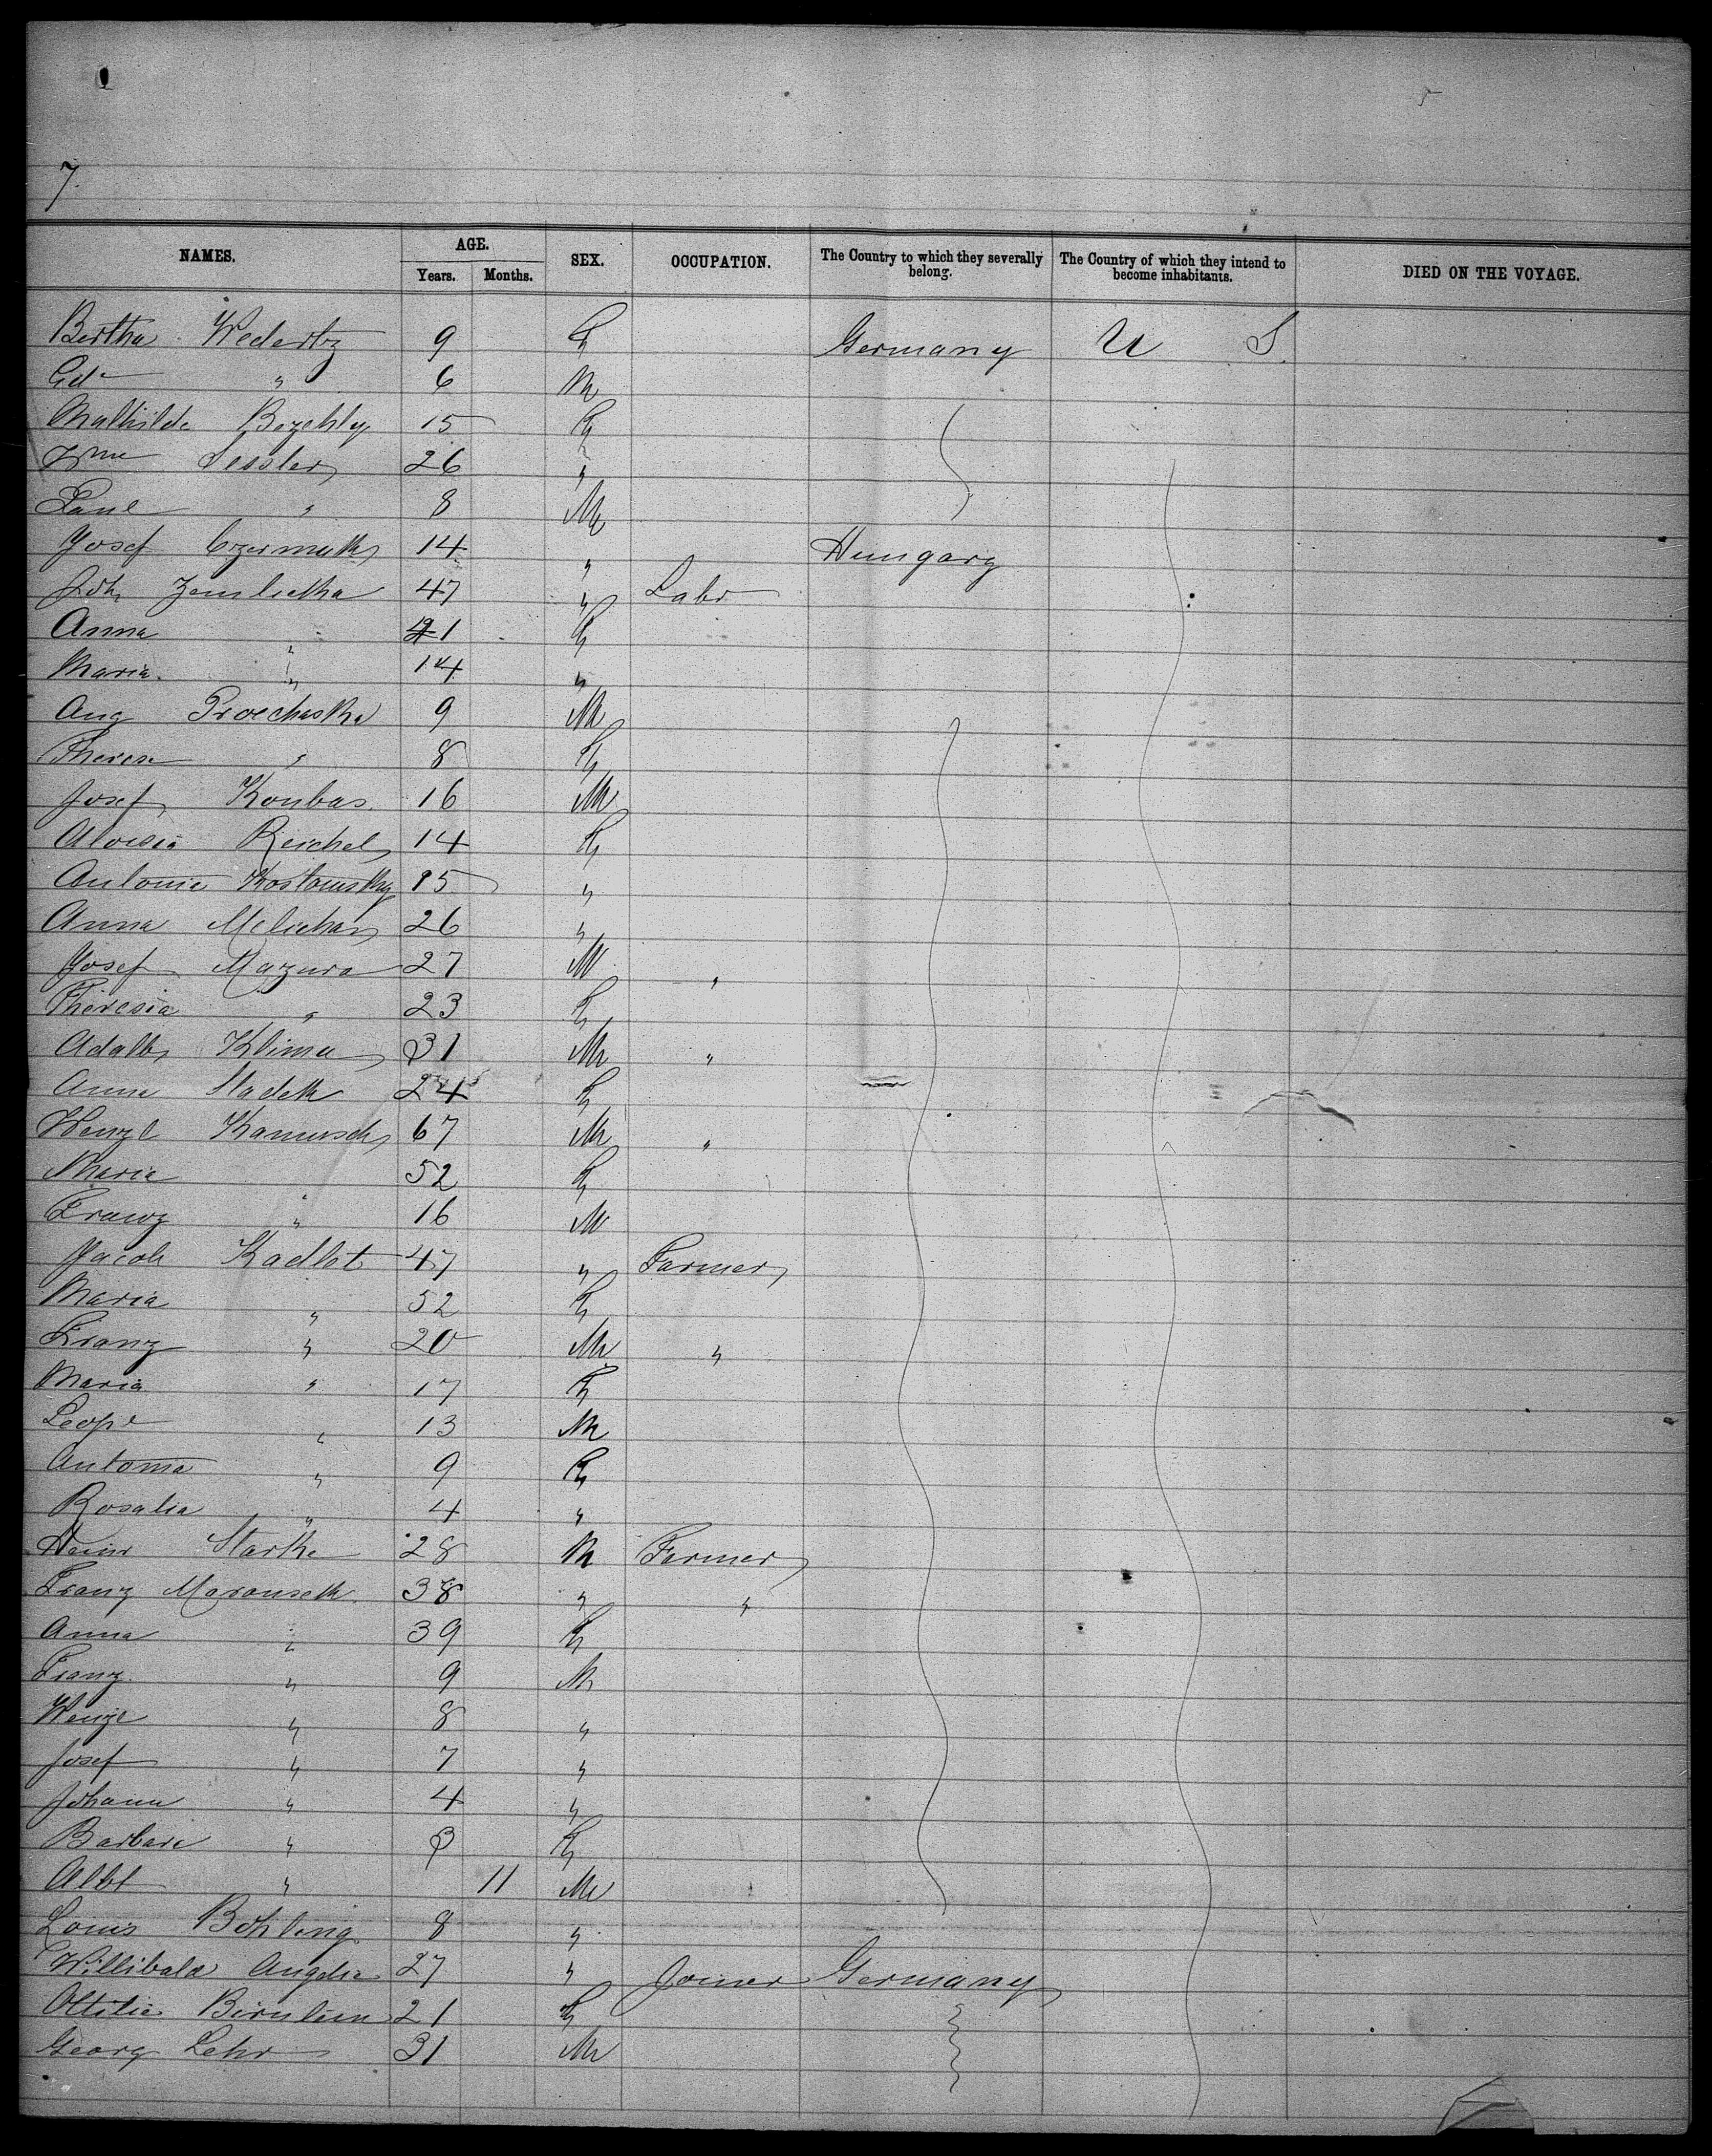 7.
NAMES. AGE. SEX. OCCUPATION. The Country to which they severally belong. The Country of which they intend to become inhabitants. DIED ON THE VOYAGE.
Years. Months.
Bertha Wedertz 9 F Germany U S.
" 6 M
Mathilde 15 F
Sessler 26 "
Paul " 8 M
Josef Czermak 14 " Hungary
Joh Zemlicka 47 " Labr
Anna " 21 F
Maria. " 14 "
Aug Prochaska 9 M
Therese " 8 F
Josef Koubas 16 M
Aloisia Reichel 14 F
Antonie 15 "
Anna Melichar 26 "
Josef Mazura 27 M "
Theresia " 23 F
Adalb Klima 31 M "
Anna Sladek 24 F
Wenzl 67 M "
Maria 52 F
Franz " 16 M
Jacob Kadlet 47 " Farmer
Maria " 52 F
Franz " 20 M "
Maria " 17 F
Leopd " 13 M
Antonia " 9 F
Rosalia " 4 "
Heinr Starke 28 M Farmer
Franz Marouseck 38 " "
Anna " 39 F
Franz " 9 M
Wenzl " 8 "
Josef " 7 "
Johann " 4 "
Barbara " 3 F
Albt " 11 M
Louis Bohling 8 "
Willibald 27 " Joiner Germany
Ottilie 21 F
Georg Lehr 31 M